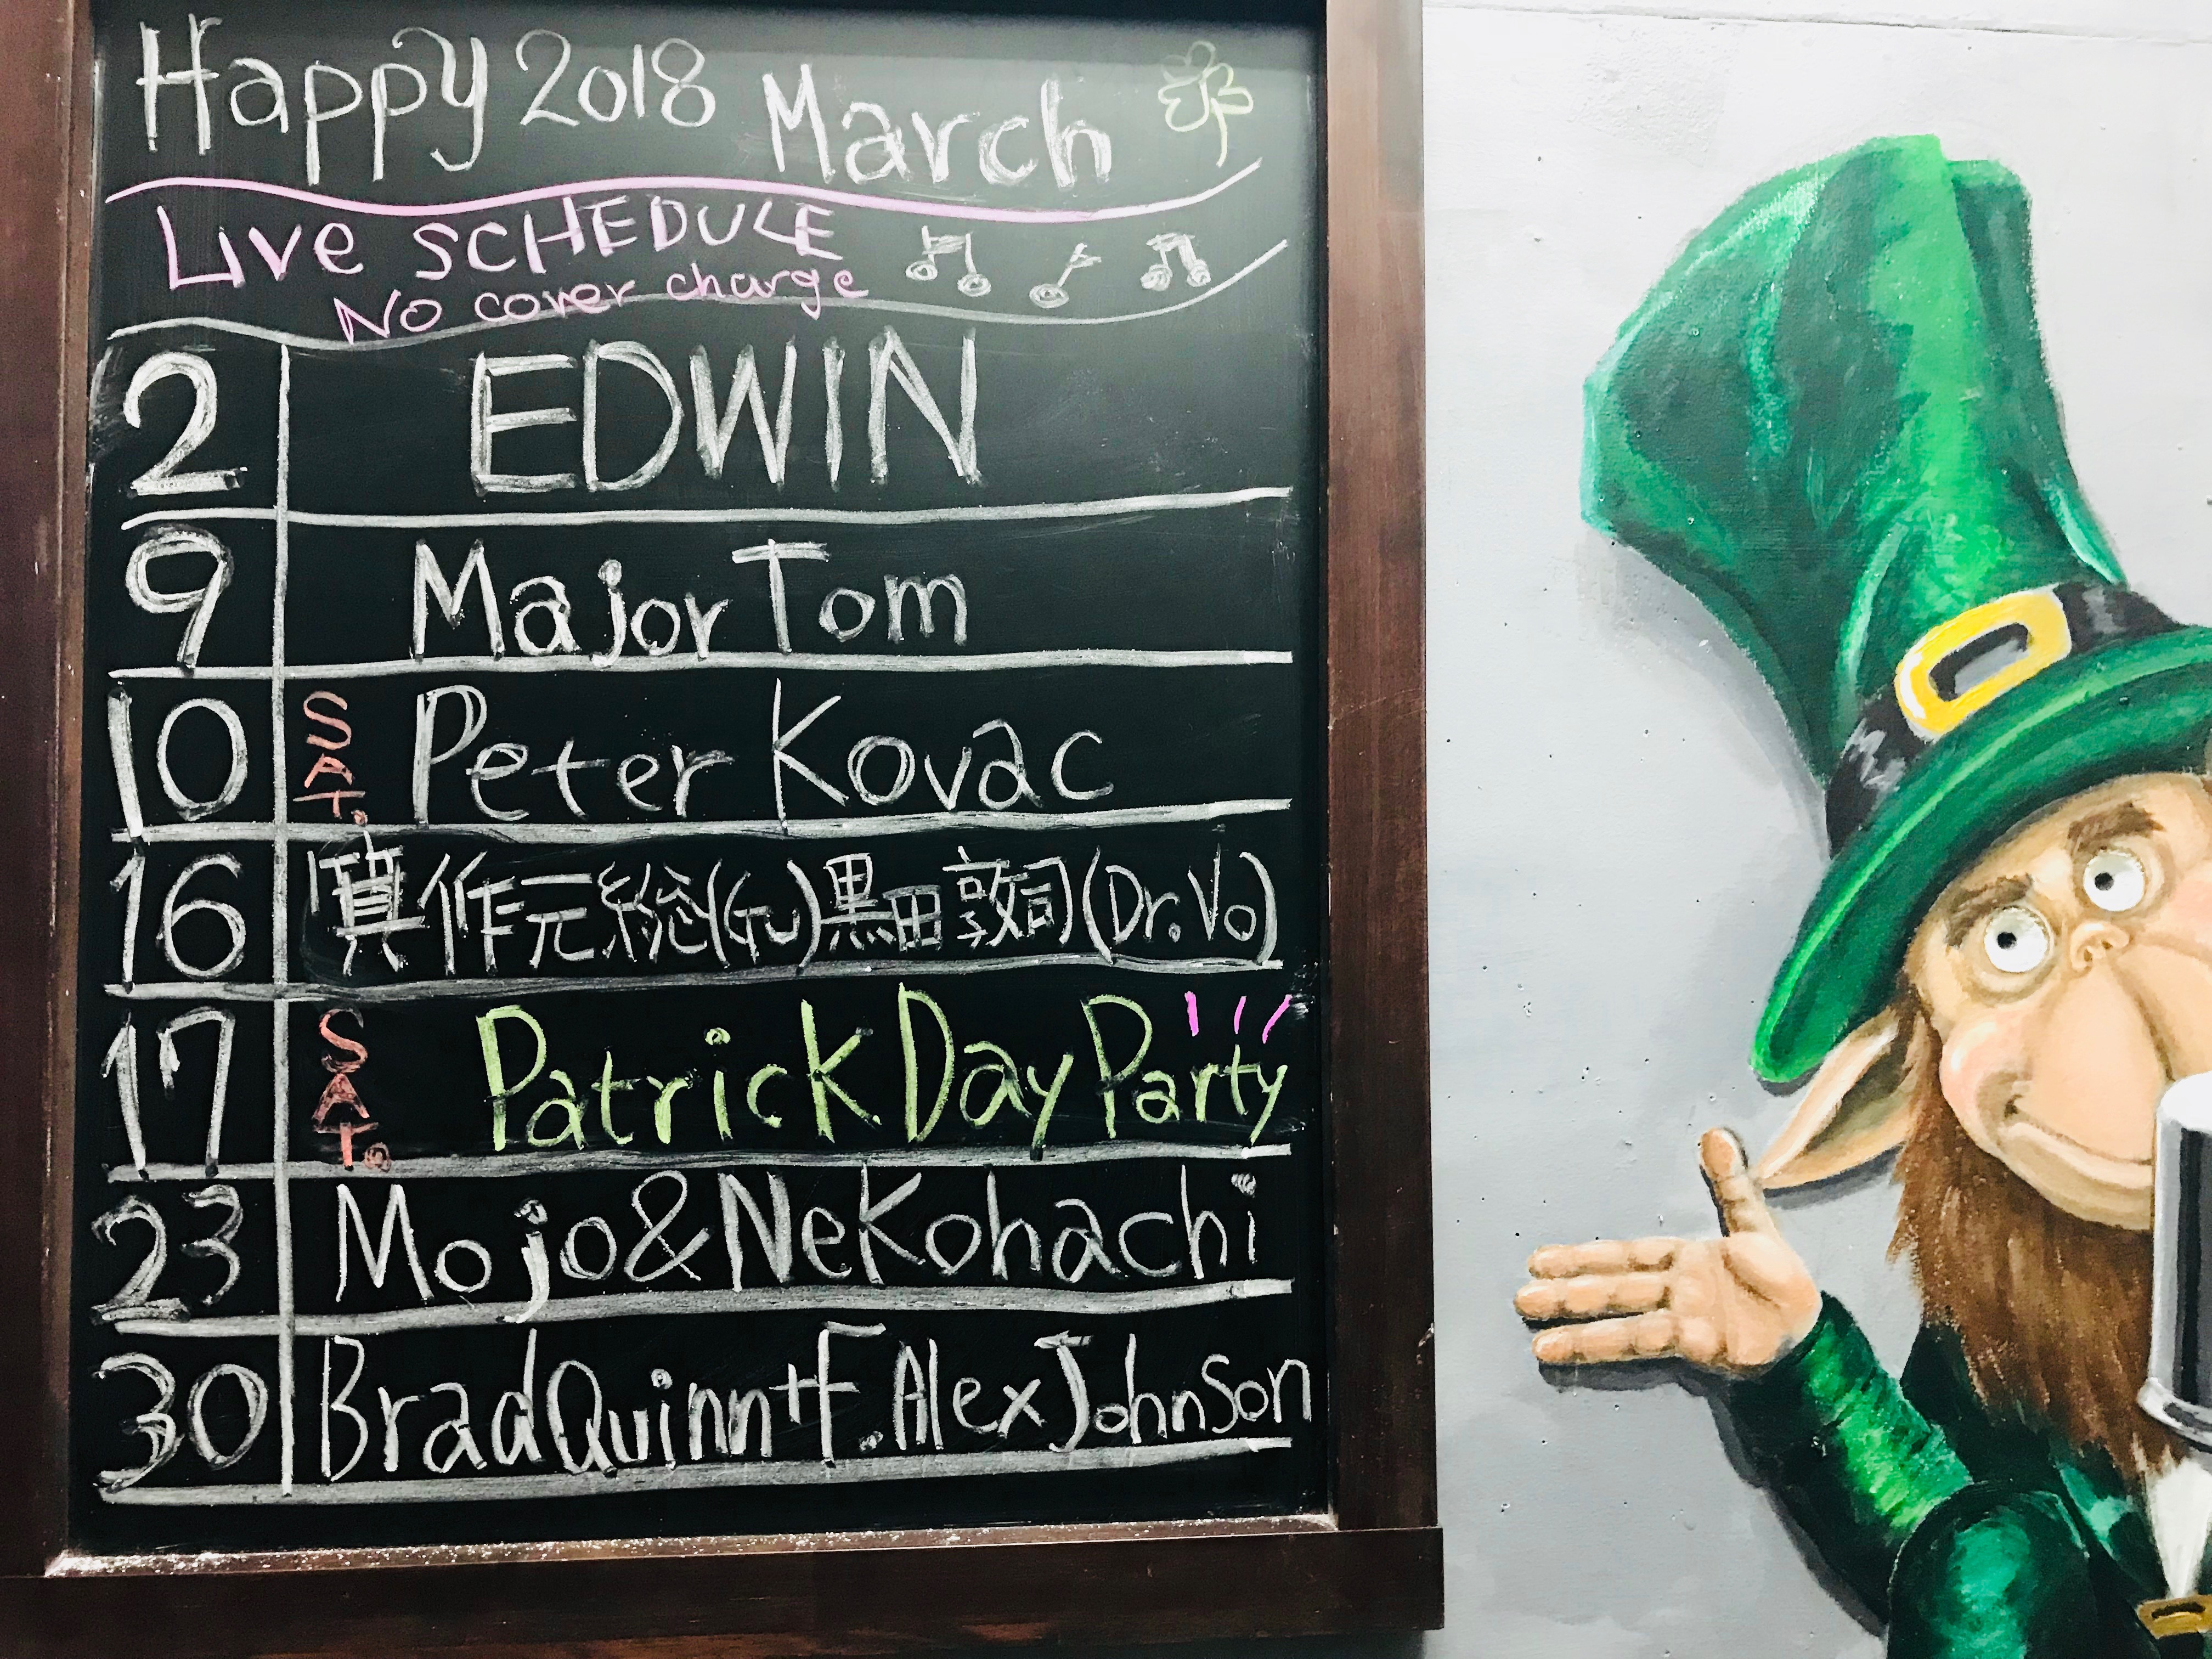 Happy 2018 March
Live SCHEDULE
No cover charge
2 EDWIN
9 Major Tom
10 SAT. Peter Kovac
16 眞作元総(Gu)黒田敦司(Dr.Vo)
17 SAT. Patrick Day Party
23 Mojo & Nekohachi
30 Brad Quinn + F. Alex Johnson